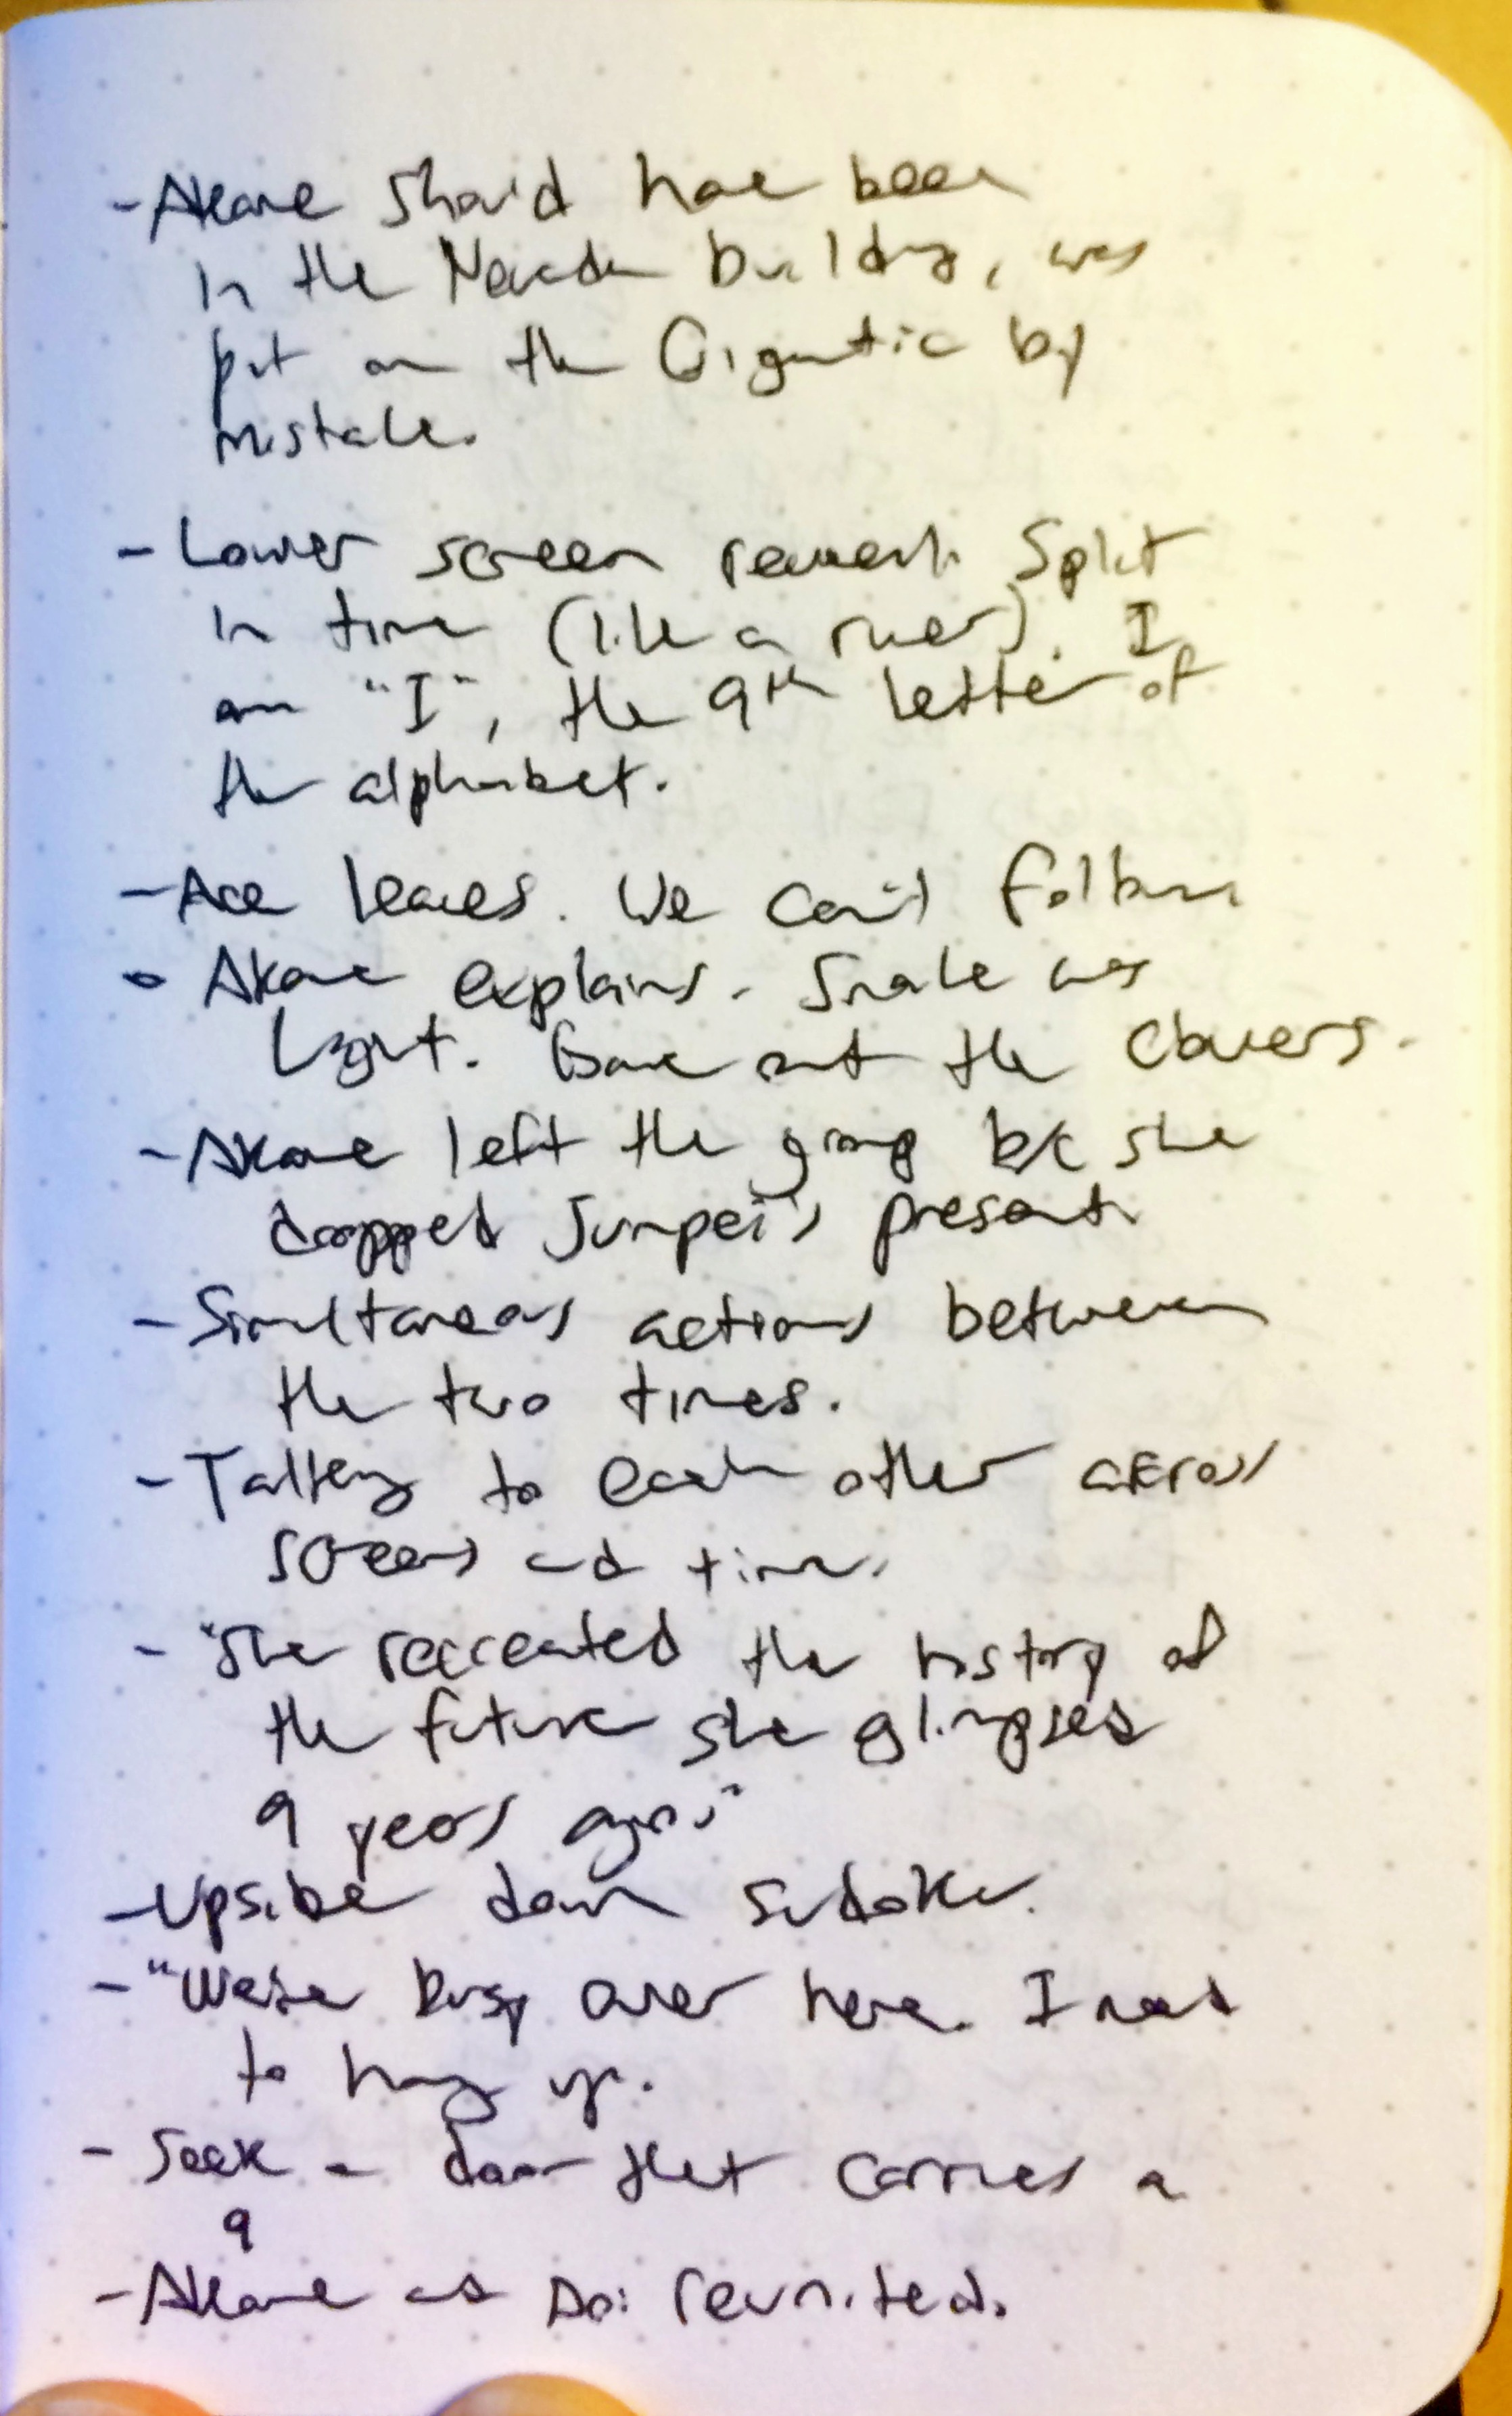 - Akane should have been
in the Nevada building, was
put on the Gigantic by
mistake.
- Lower screen reveal: Split
in time (like a river). I
am "I", the 9th letter of
the alphabet.
- Ace leaves. We can't follow
• Akane explains. Snake was
Light. Gave out the clovers.
- Akane left the group b/c she
dropped Junpei's present.
- Simultaneous actions between
the two times.
- Talking to each other across
screens and time.
- "She recreated the history of
the future she glimpsed
9 years ago."
- Upside down sudoku.
- "We're busy over here. I need
to hang up.
- Seek a door that carries a
9
- Akane and Aoi reunited.